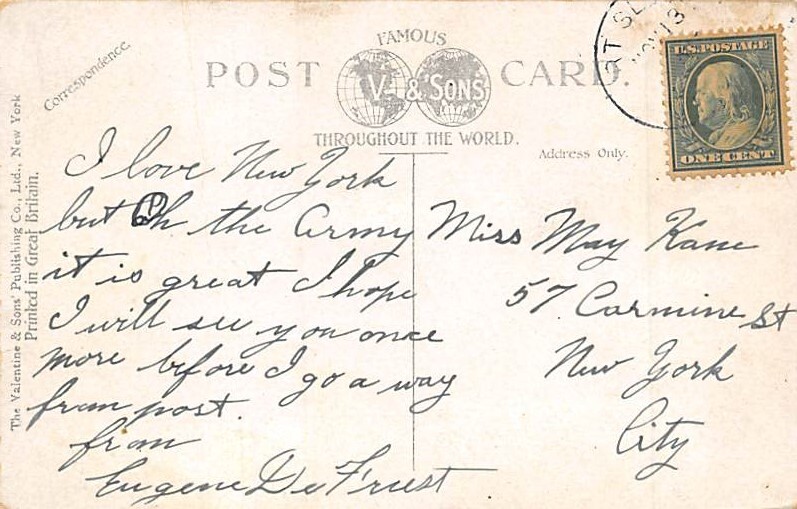 FAMOUS
POST CARD.
V. & SONS
THROUGHOUT THE WORLD.
Correspondence.
Address Only.
NOV 13
U.S. POSTAGE
ONE CENT
The Valentine & Sons' Publishing Co., Ltd., New York
Printed in Great Britain.
I love New York
but Oh the Army
it is great I hope
I will see you once
more before I go a way
from post.
from
Eugene De Friest
Miss May Kane
57 Carmine St
New York
City